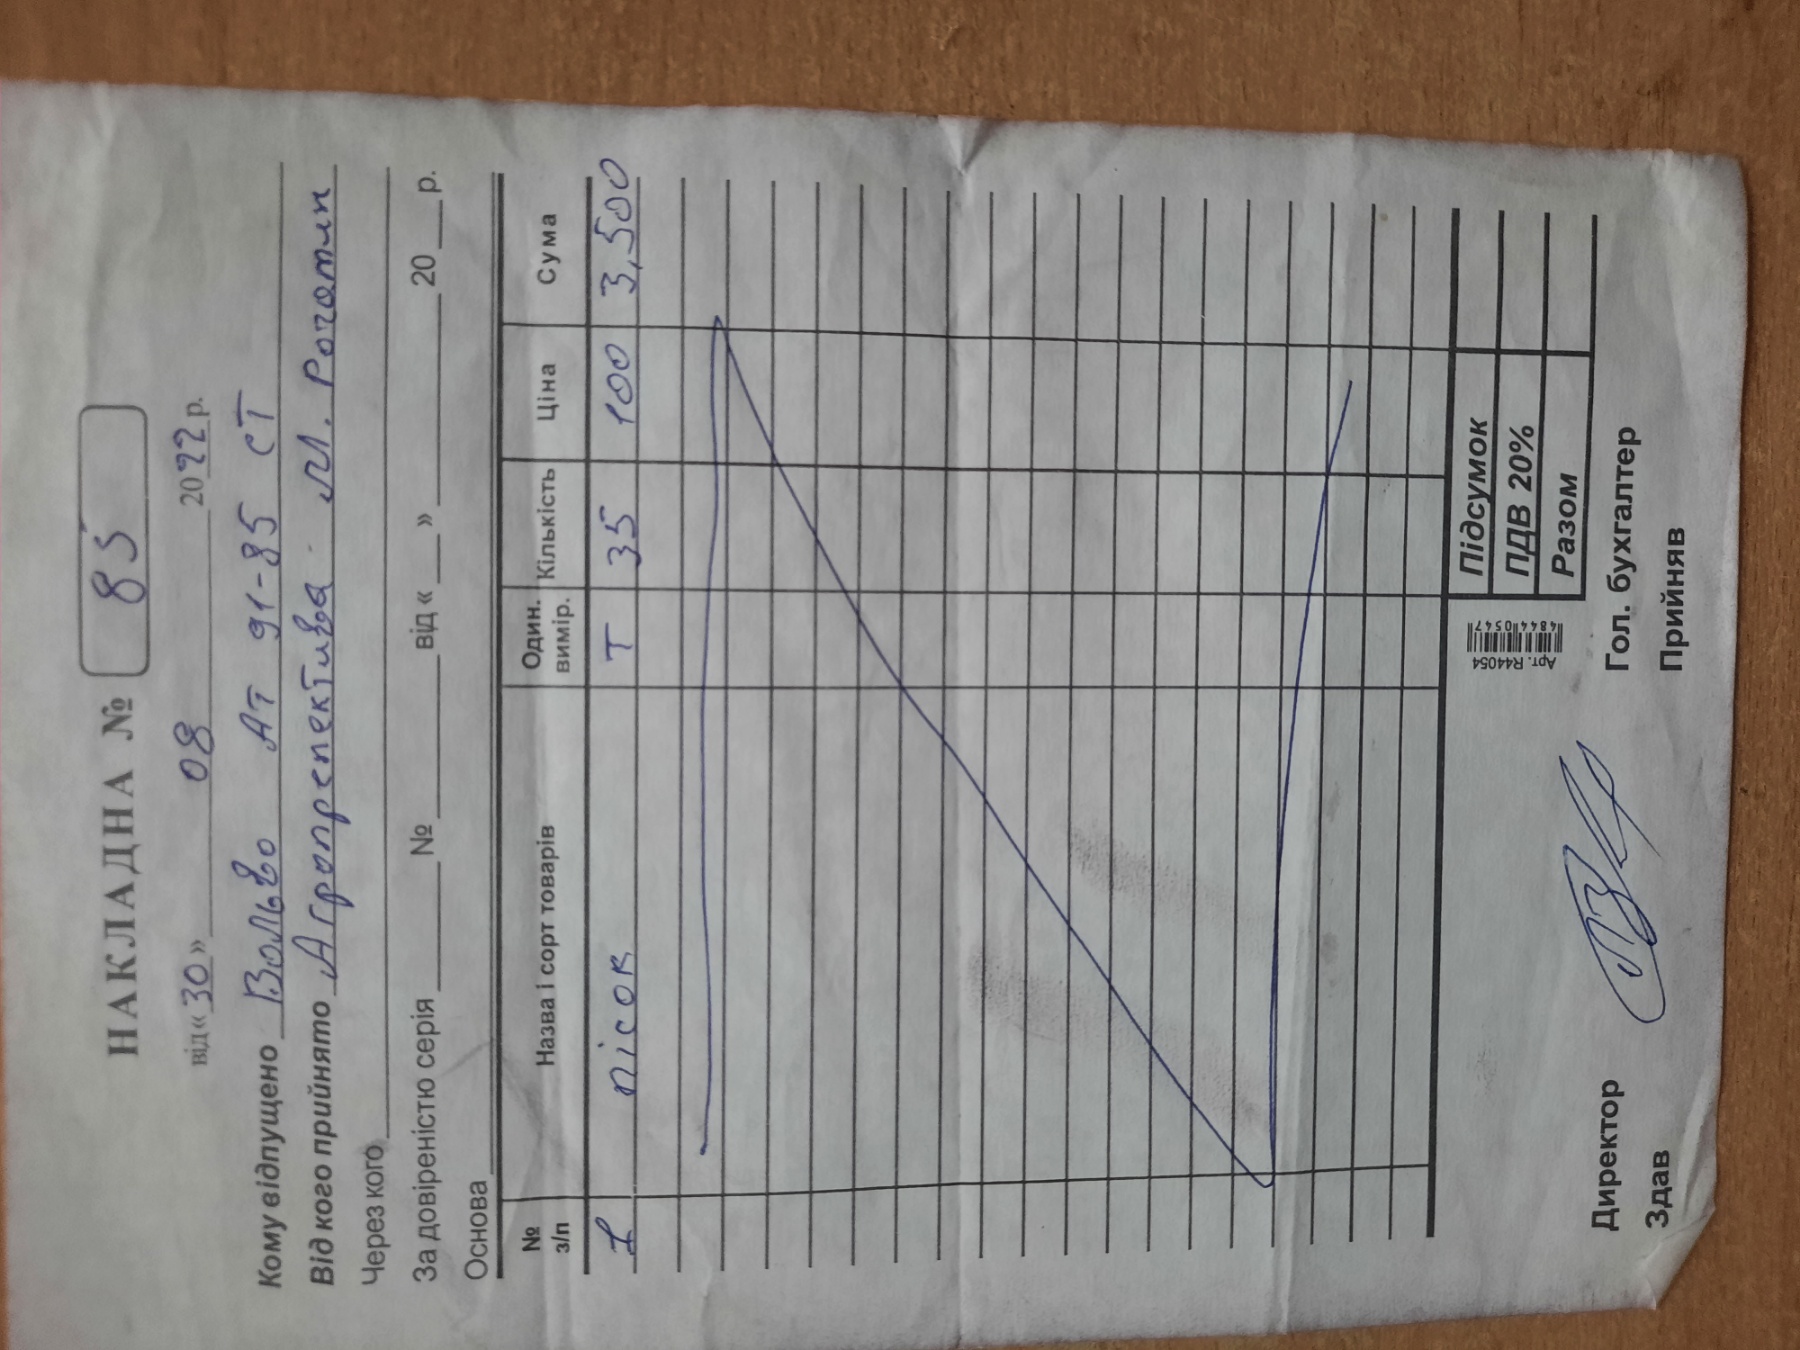 НАКЛАДНА № 85
від « 30 » 08 2022 р.
Кому відпущено Вольво АТ 91-85 СТ
Від кого прийнято Агропрспектива м. Рогатин
Через кого
За довіреністю серія № від « » 20 р.
Основа
№ з/п Назва і сорт товарів Один. вимір. Кількість Ціна Сума
1 пісок Т 35 100 3,500
Підсумок
ПДВ 20%
Разом
Арт. R44054
48440547
Директор Гол. бухгалтер
Здав Прийняв